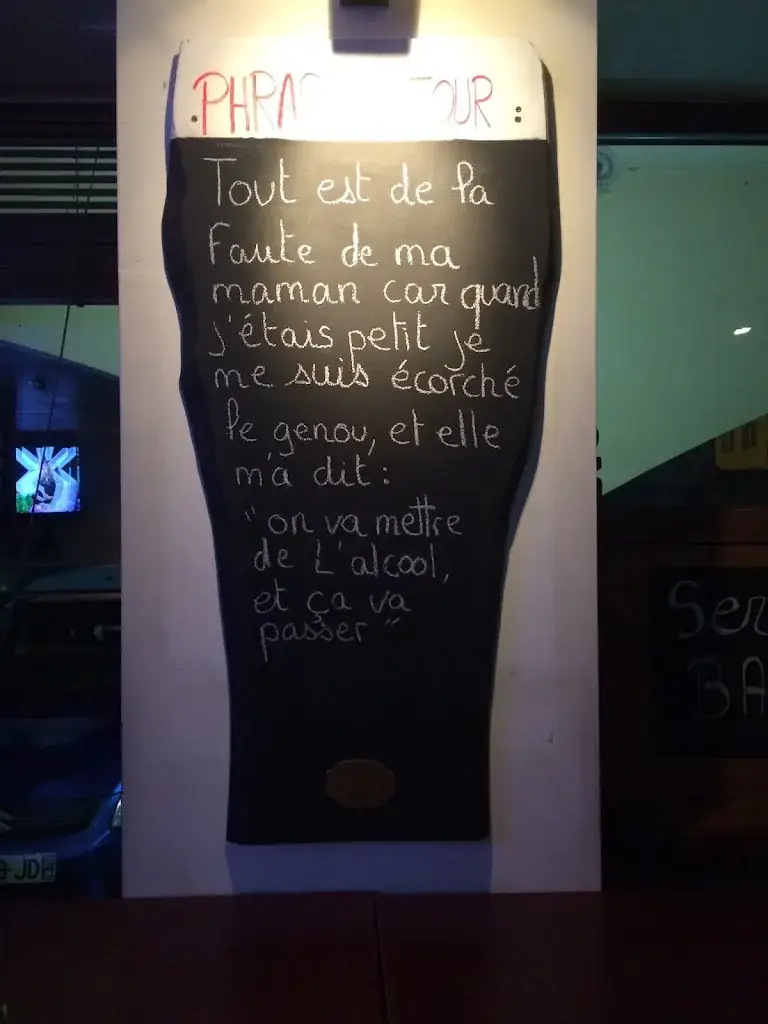 PHRA OUR :
Tout est de la
Faute de ma
maman car quand
j'étais petit je
me suis écorché
le genou, et elle
m'a dit :
"on va mettre
de L'alcool,
et ça va
passer"
Ser
BA
JD